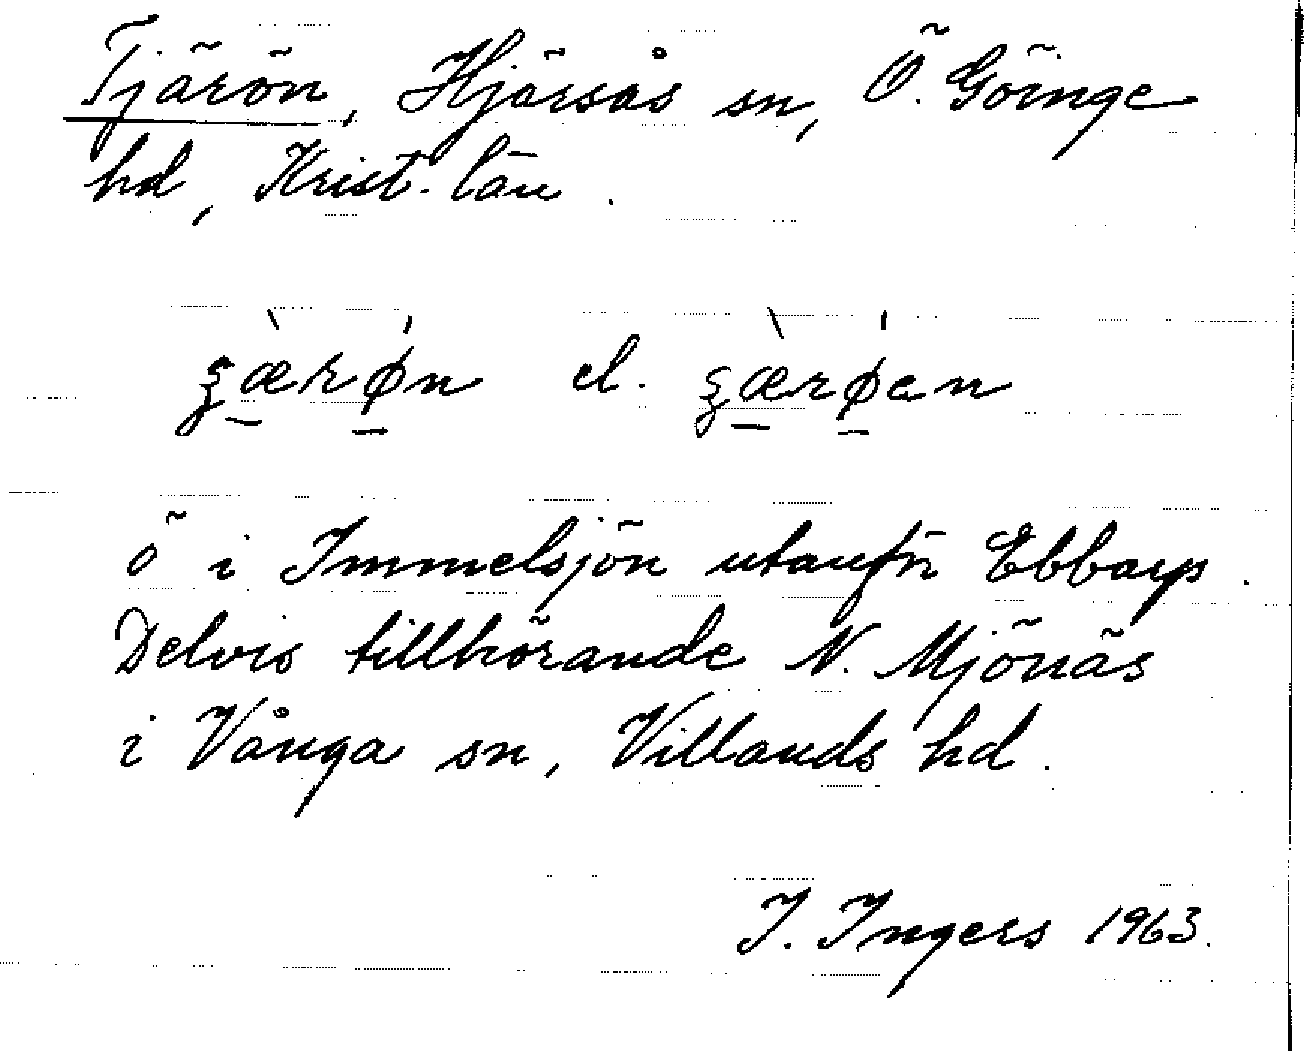 Tjärön, Hjärsås sn, Ö. Göinge
hd, Krist. län.
ʒæ̀rø̍n el. ʒæ̀rø̍en
ö i Immelsjön utanför Ebbarp.
Delvis tillhörande N. Mjönäs
i Vånga sn, Villands hd.
I. Ingers 1963.